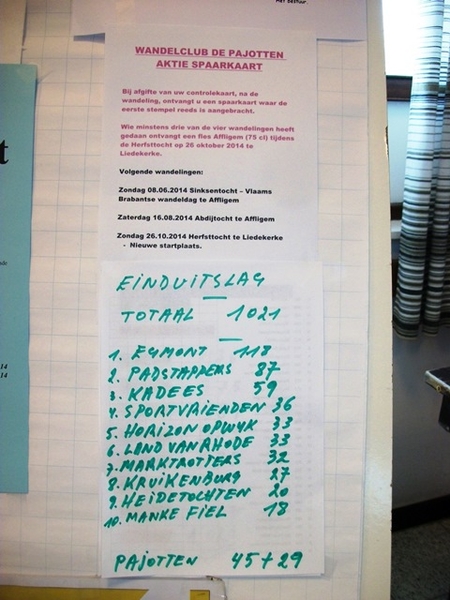 Het bestuur.
WANDELCLUB DE PAJOTTEN
AKTIE SPAARKAART
Bij afgifte van uw controlekaart, na de
wandeling, ontvangt u een spaarkaart waar de
eerste stempel reeds is aangebracht.
Wie minstens drie van de vier wandelingen heeft
gedaan ontvangt een fles Affligem (75 cl) tijdens
de Herfsttocht op 26 oktober 2014 te
Liedekerke.
Volgende wandelingen:
Zondag 08.06.2014 Sinksentocht – Vlaams
Brabantse wandeldag te Affligem
Zaterdag 16.08.2014 Abdijtocht te Affligem
Zondag 26.10.2014 Herfsttocht te Liedekerke
- Nieuwe startplaats.
EINDUITSLAG
TOTAAL 1021
1. EGMONT 118
2. PADSTAPPERS 87
3. KADEES 59
4. SPORTVRIENDEN 36
5. HORIZON OPWYK 33
6. LAND VAN RHODE 33
7. MARKTROTTERS 32
8. KRUIKENBURG 27
9. HEIDETOCHTEN 20
10. MANKE FIEL 18
PAJOTTEN 45 + 29